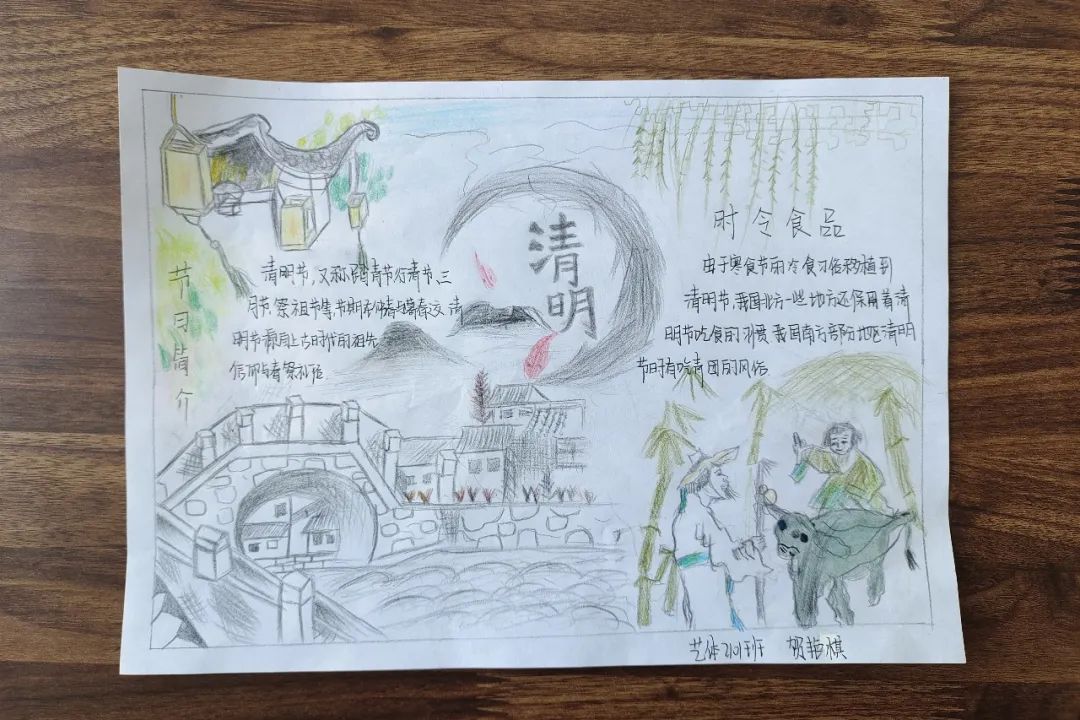 清明
节日简介
清明节,又称踏青节、行清节、三
月节、祭祖节等,节期在仲春与暮春之交。清
明节源自上古时代的祖先
信仰与春祭礼俗
时令食品
由于寒食节的冷食习俗移植到
清明节,我国北方一些地方还保留着清
明节吃食的习惯,我国南方部分地区清明
节时有吃青团的风俗
艺体2101班 贺